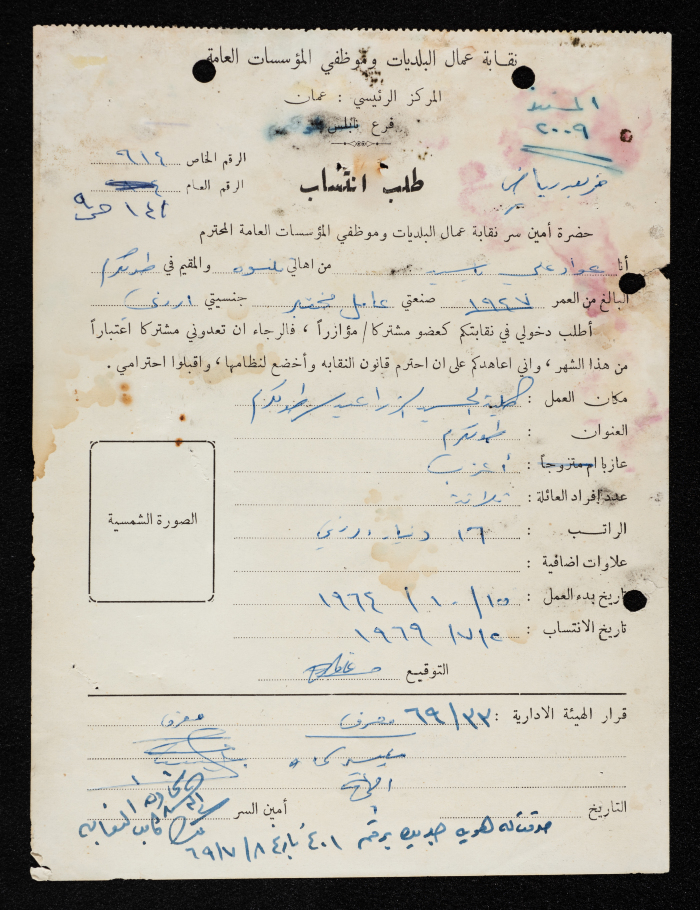 نقابة عمال البلديات وموظفي المؤسسات العامة
المركز الرئيسي : عمان
فرع نابلس
٢٠٠٩
الرقم الخاص ٩١٤
طلب انتساب
الرقم العام
حضرة أمين سر نقابة عمال البلديات وموظفي المؤسسات العامة المحترم
أنا عواد علي ياسين من اهالي قلنسوه والمقيم في طولكرم
البالغ من العمر ١٩٤٧ صنعتي عامل مختبر جنسيتي اردني
أطلب دخولي في نقابتكم كعضو مشتركا/ مؤازراً ، فالرجاء ان تعدوني مشتركا اعتباراً
من هذا الشهر ، واني اعاهدكم على ان احترم قانون النقابه وأخضع لنظامها ، واقبلوا احترامي .
مكان العمل : كلية الحسين الزراعية / طولكرم
العنوان : طولكرم
عازبا ام متزوجاً : أعزب
عدد افراد العائلة : ثلاثة
الراتب : ١٦ دينار اردني
علاوات اضافية :
تاريخ بدء العمل : ١٥ / ١٠ / ١٩٦٤
تاريخ الانتساب : ٢ / ٧ / ١٩٦٩
الصورة الشمسية
التوقيع
قرار الهيئة الادارية : ٣٣ / ٦٩
التاريخ
أمين السر
كاتب النقابه
صدرت له هويه جديده برقم ٤٠١ تاريخ ٨ / ٧ / ٦٩